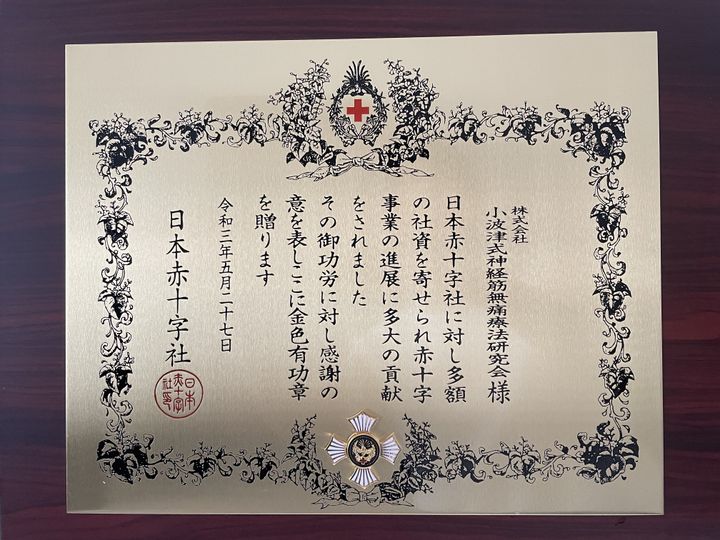 株式会社
小波津式神経筋無痛療法研究会 様
日本赤十字社に対し多額
の社資を寄せられ赤十字
事業の進展に多大の貢献
をされました
その御功労に対し感謝の
意を表しここに金色有功章
を贈ります
令和三年五月二十七日
日本赤十字社
日本
赤十字
社印